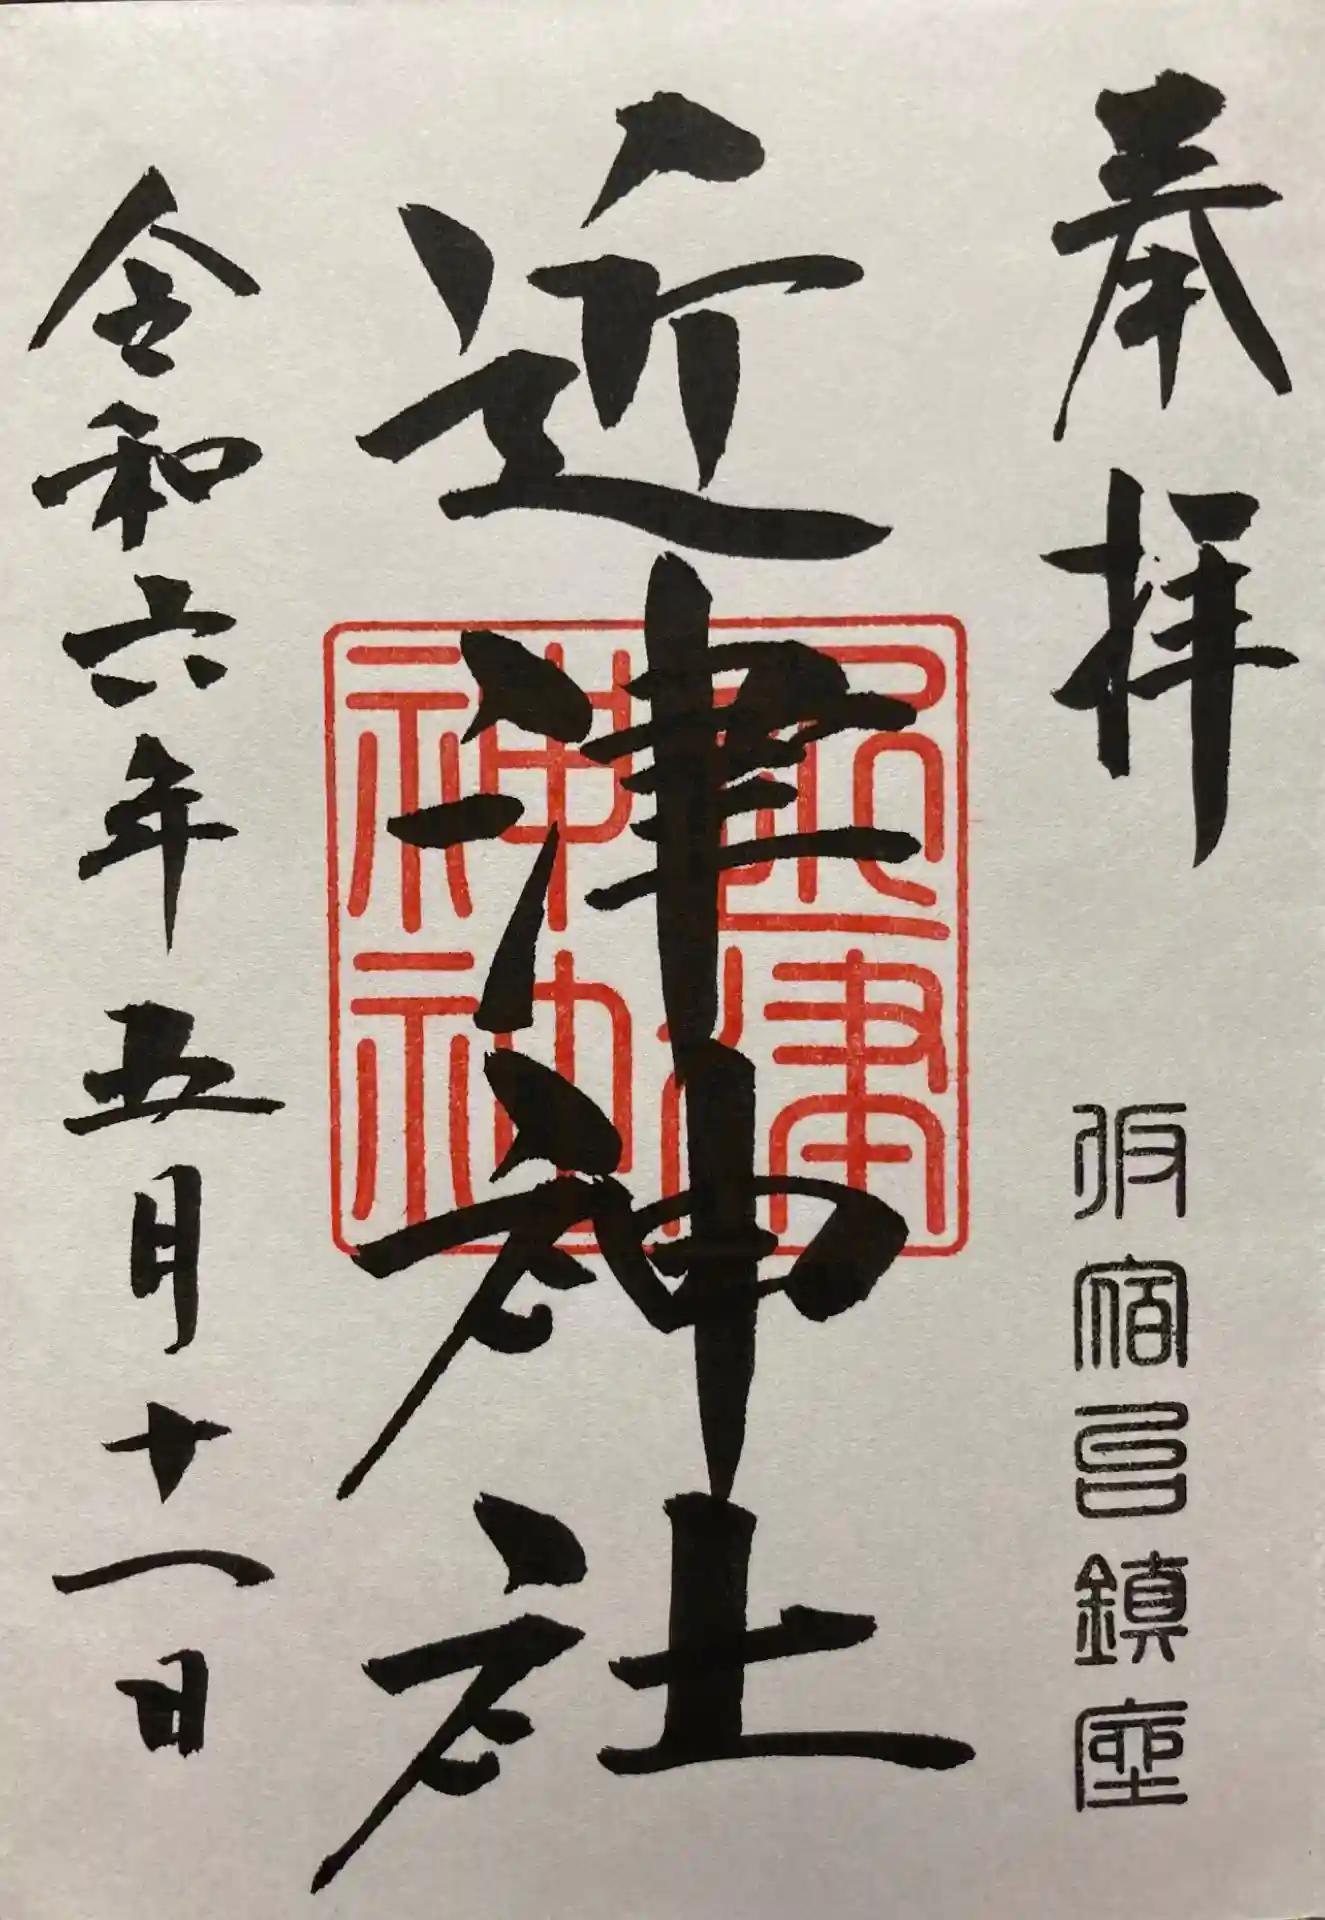 奉拝
仮宿 鎮座
近津神社
近津
神社
令和六年五月十一日